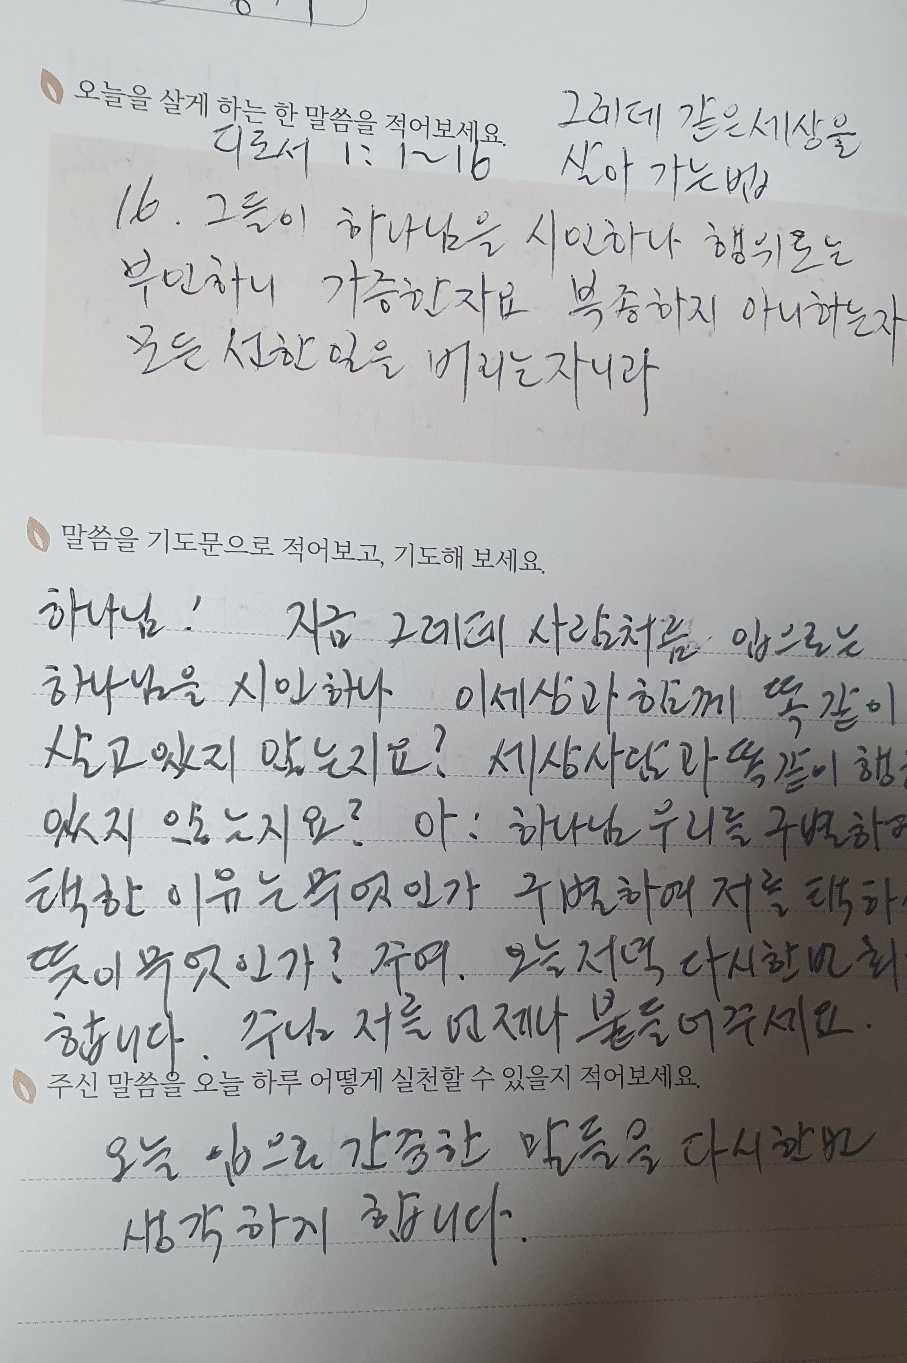 오늘을 살게 하는 한 말씀을 적어보세요.
그레데 같은 세상을
살아 가는 법
디도서 1: 1~16
16. 그들이 하나님을 시인하나 행위로는
부인하니 가증한자요 복종하지 아니하는자
모든 선한 일을 버리는자니라
말씀을 기도문으로 적어보고, 기도해 보세요.
하나님! 지금 그레데 사람처럼 입으로는
하나님을 시인하나 이세상과 함께 똑같이
살고 있지 않는지요? 세상사람과 똑같이
있지 않는지요? 아! 하나님 우리를
택한 이유는 무엇인가 구별하여 저를
뜻이 무엇인가? 주여. 오늘저녁 다시한번
합니다. 주님 저를 언제나 붙들어주세요.
주신 말씀을 오늘 하루 어떻게 실천할 수 있을지 적어보세요.
오늘 입으로 간증한 말들을 다시한번
생각하게 합니다.